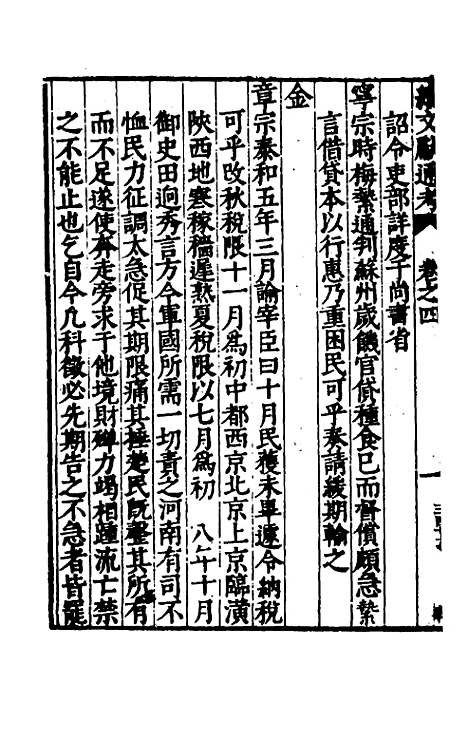 文獻通考 卷之四
詔令吏部詳度于尚書省
寧宗時梅縶通判蘇州歲饑官貸種食已而督償頗急縶
言借貸本以行惠乃重困民可乎奏請緩期輸之
金
章宗泰和五年三月諭宰臣曰十月民穫未畢遽令納稅
可乎改秋稅限十一月爲初中都西京北京上京臨潢
陜西地寒稼穡遲熟夏稅限以七月爲初 八年十月
御史田迥秀言方今軍國所需一切責之河南有司不
恤民力征調太急促其期限痛其捶楚民既罄其所有
而不足遂使奔走旁求于他境財殫力竭相踵流亡禁
之不能止也乞自今凡科徵必先期告之不急者皆罷